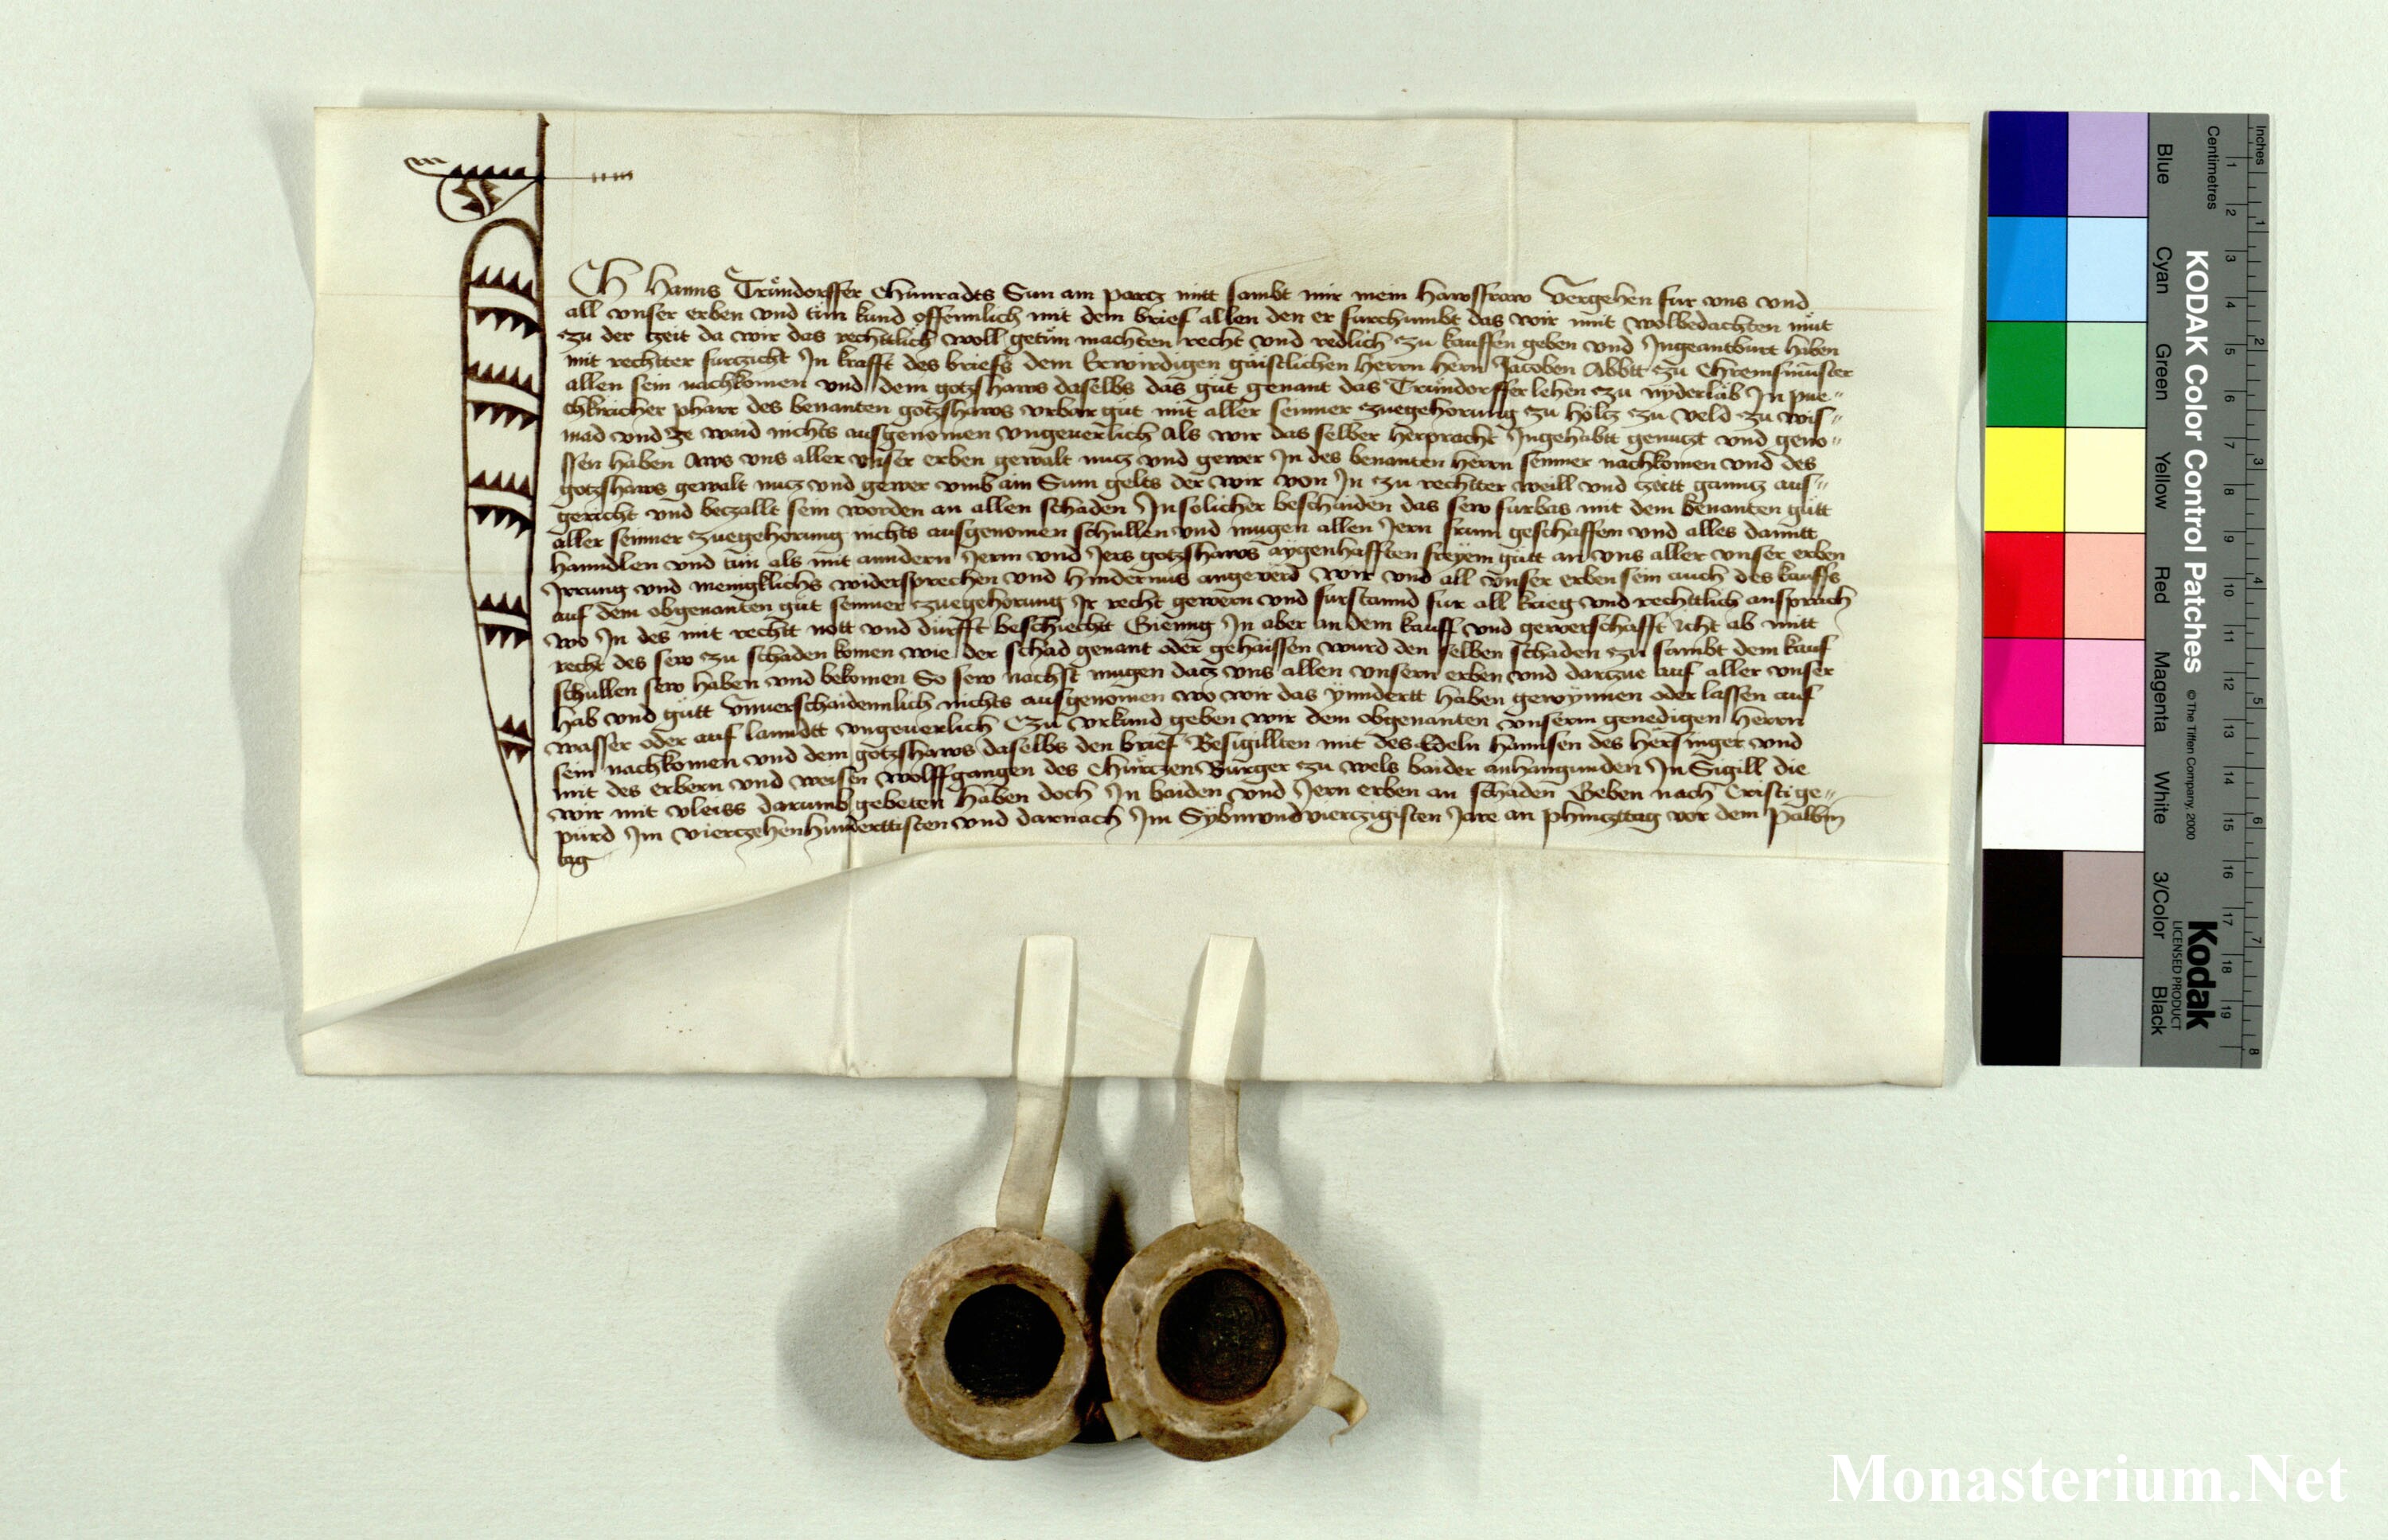 Ich Hanns Tründorffer Chünradts Sun am portz mitt sambt mir mein hawsfraw Vergehen fur vns vnd
all vnser erben vnd tün kund offennlich mit dem brief allen den er furchumbt das wir mit wolbedachten müt
zu der tzeit da wir das rechttlich woll getün machten recht vnd redlich zu kauffen geben vnd Ingeantburt haben
mit rechtter furtzicht In krafft des briefs dem Erwirdigen gaistlichen herrn hern Jacoben Abbtt zu Chremsmünster
allen sein nachkomen vnd dem gotzshaws daselbs das güt genant das Tründorffer lehen zu nyderläb In pue„
chkiricher pharr des benanten gotzshaws vrbar güt mit aller seinner zuegehorung zu holtz zu veld zu wis„
mad vnd ze waid nichts ausgenomen vngeuerlich Als wir das selber herpracht Ingehabtt genutzt vnd geno„
ssen haben Aws vns aller vnser erben gewalt nutz vnd gewer In des benanten herrn seinner nachkomen vnd des
gotzshaws gewalt nutz vnd gewer vmb ain Sum gelts der wir von In zu rechtter weill vnd tzeitt ganntz aus„
gericht vnd betzallt sein worden an allen schaden In solicher beschaiden das sew furbas mit dem benanten gütt
aller seinner zuegehorung nichts ausgenomen schullen vnd mugen allen Jern frum geschaffen vnd alles damitt
hanndlen vnd tün als mit anndern Jerm vnd Jers gotzshaws aygenhafften freyem gütt an vns aller vnser erben
Irrung vnd menigklichs widersprechen vnd hindernus angeuerd Wir vnd all vnser erben sein auch des kauffs
auf dem obgenanten güt seinner zuegehorung Ir recht gewern vnd furstannd fur all krieg vnd rechttlich ansprach
wo In des mit rechtt nott vnd dürfft beschiechtt Gienng In aber an dem kauff vnd gewerschafft icht ab mitt
recht des sew zu schaden komen wie der schad genant oder gehaissen wurd den selben schaden zu sambt dem kauf
schullen sew haben vnd bekomen So sew nachst mugen datz vns allen vnsern erben vnd dartzue auf aller vnser
hab vnd gütt vnuerschaidennlich nichts ausgenomen wo wir das ynndertt haben gewynnen oder lassen auf
wasser oder auf lanndtt vngeuerlich Czu vrkund geben wir dem obgenanten vnserm genedigen herrn
sein nachkomen vnd dem gotzshaws daselbs den brief Besigillten mit des Edeln hannsen des hersinger vnd
mit des erbern vnd weisen wolffgangen des Chürtzen Burger zu wels baider anhangunden In Sigill die
wir mit vleiss darumb gebeten haben doch In baiden vnd Jern erben an schaden Geben nach Cristi ge„
pürd Im viertzehenhunderttisten vnd darnach Im Sybnvndviertzigisten Jare an phintztag vor dem Palbm
tag
KODAK Color Control Patches
© The Tiffen Company, 2000
Kodak
LICENSED PRODUCT
Blue
Cyan
Green
Yellow
Red
Magenta
White
3/Color
Black
Inches
1 2 3 4 5 6 7 8
Centimetres
1 2 3 4 5 6 7 8 9 10 11 12 13 14 15 16 17 18 19
Monasterium.Net